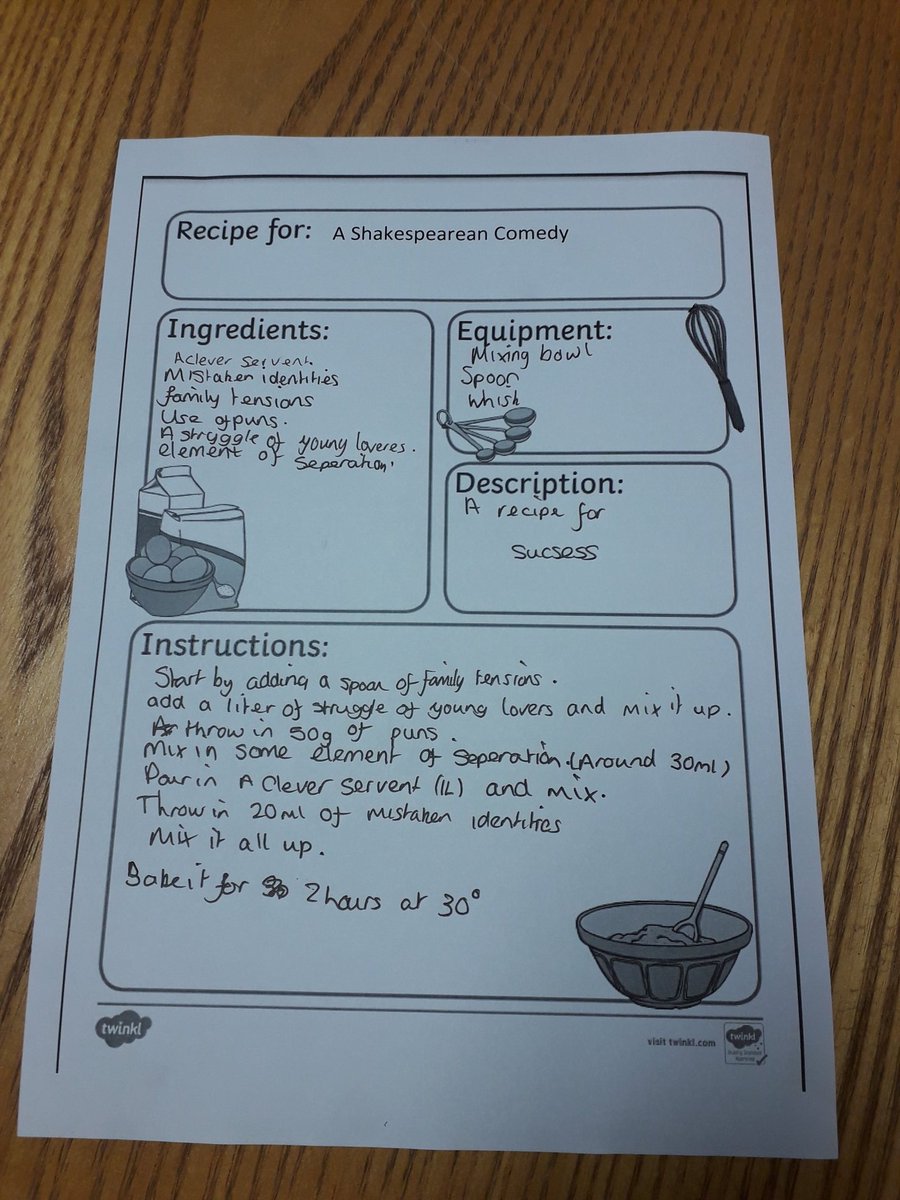 Recipe for: A Shakespearean Comedy
Ingredients:
A clever servent.
Mistaken identities
family tensions
Use of puns.
A struggle of young loveres.
element of seperation.
Equipment:
Mixing bowl
Spoon
Whisk
Description:
A recipe for
sucsess
Instructions:
Start by adding a spoon of family tensions.
add a liter of struggle of young lovers and mix it up.
throw in 50g of puns.
Mix in some element of seperation.(Around 30ml)
Pour in A Clever servent (1L) and mix.
Throw in 20ml of mistaken identities
Mix it all up.
Bake it for 2 hours at 30°
twinkl
visit twinkl.com
twinkl